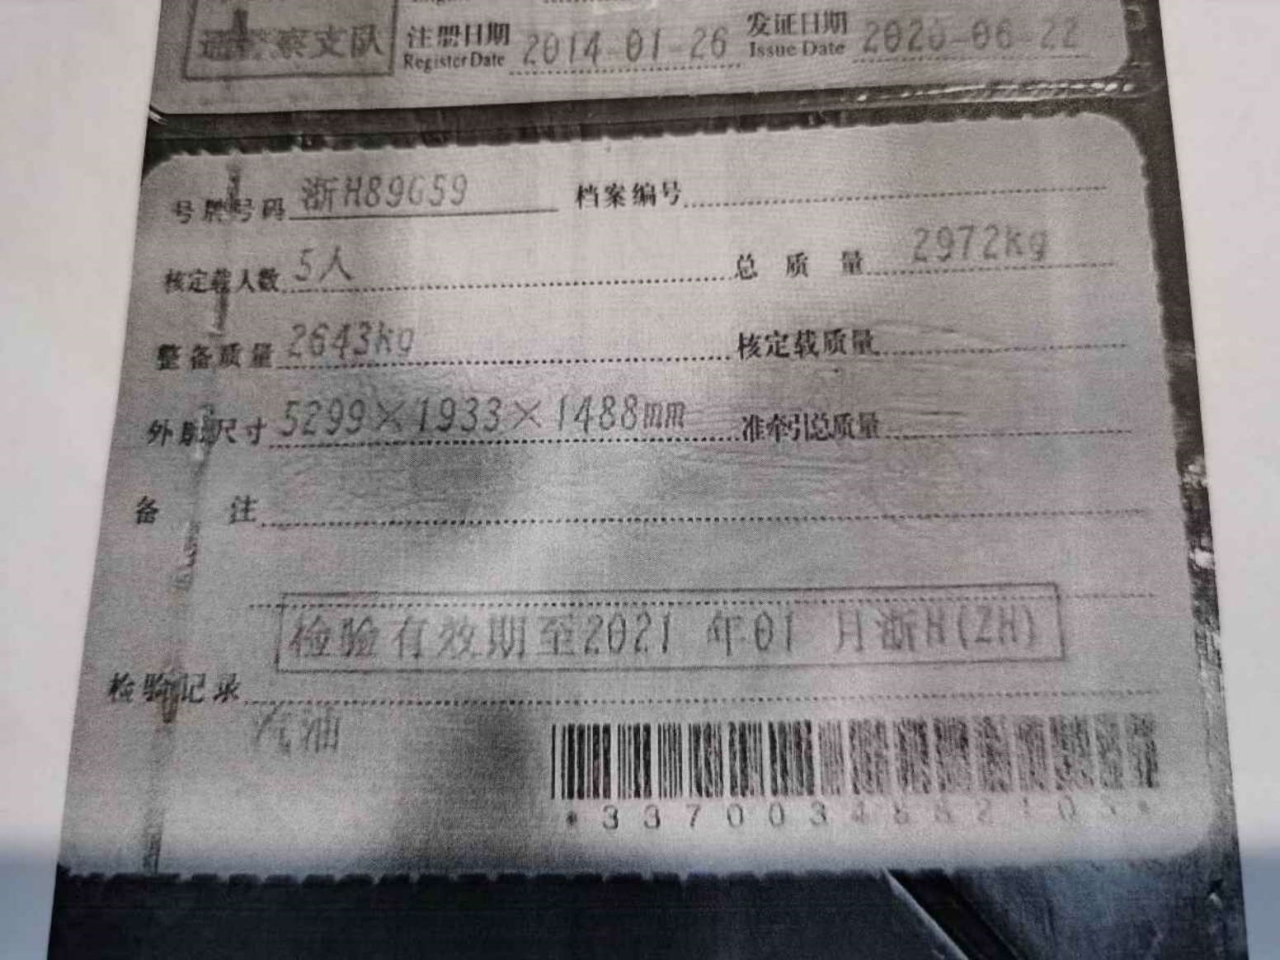 通警察支队 注册日期 2014-01-26 发证日期 2020-06-22
Register Date Issue Date
号牌号码 浙H89G59 档案编号
核定载人数 5人 总质量 2972kg
整备质量 2643kg 核定载质量
外廓尺寸 5299×1933×1488mm 准牵引总质量
备注
检验有效期至2021年01月浙H(ZH)
检验记录
汽油